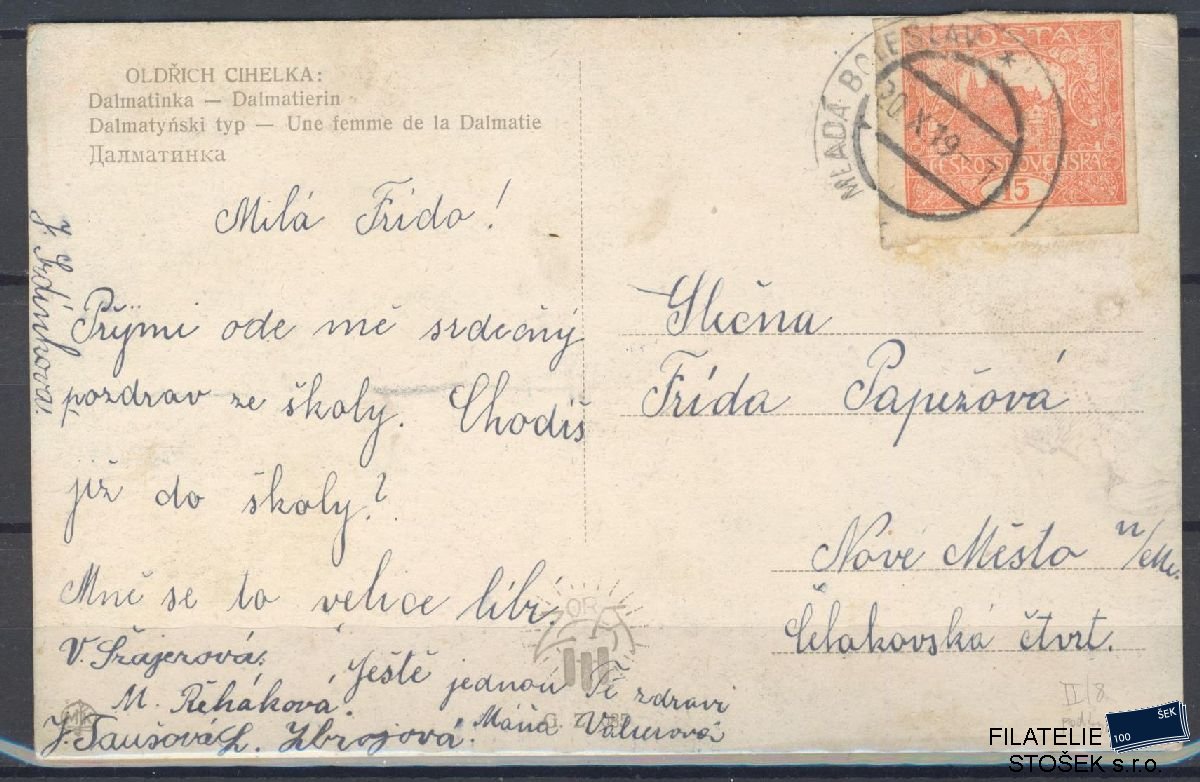 OLDŘICH CIHELKA:
Dalmatinka — Dalmatierin
Dalmatyński typ — Une femme de la Dalmatie
Далматинка
MLADÁ BOLESLAV *
20 X 19
POŠTA
ČESKOSLOVENSKÁ
15
Milá Frído!
Přijmi ode mě srdečný
pozdrav ze školy. Chodíš
již do školy?
Mně se to velice líbí.
V. Šrajerová.
Ještě jednou Tě zdraví
M. Řeháková.
Máňa Valterová
J. Taušová L. Zbrojová.
Slečna
Frída Papežová
Nové Město n/Met.
Čelakovská čtvrt.
II/8.
MK
FILATELIE
STOŠEK s.r.o.
100
ŠEK